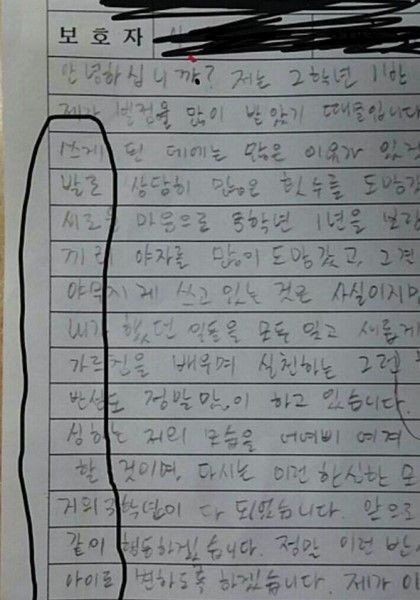 보호자
안녕하십니까? 저는 2학년 11반
제가 벌점을 많이 받았기 때문입니다
쓰게 된 데에는 많은 이유가 있겠
발로 상당히 많은 횟수를 도망갔
새로운 마음으로 3학년 1년을 보람
끼리 야자를 많이 도망갔고, 그건
야무지게 쓰고 있는 것은 사실이지만
내가 했던 일들을 모두 잊고 새롭게
가르침을 배우며 실천하는 그런
반성도 정말 많이 하고 있습니다
심하는 저의 모습을 어여삐 여겨
할 것이며, 다시는 이런 한심한 모
거의 3학년이 다 되었습니다. 앞으로
같이 행동하겠습니다. 정말 이런 반
아이로 변하도록 하겠습니다. 제가 이